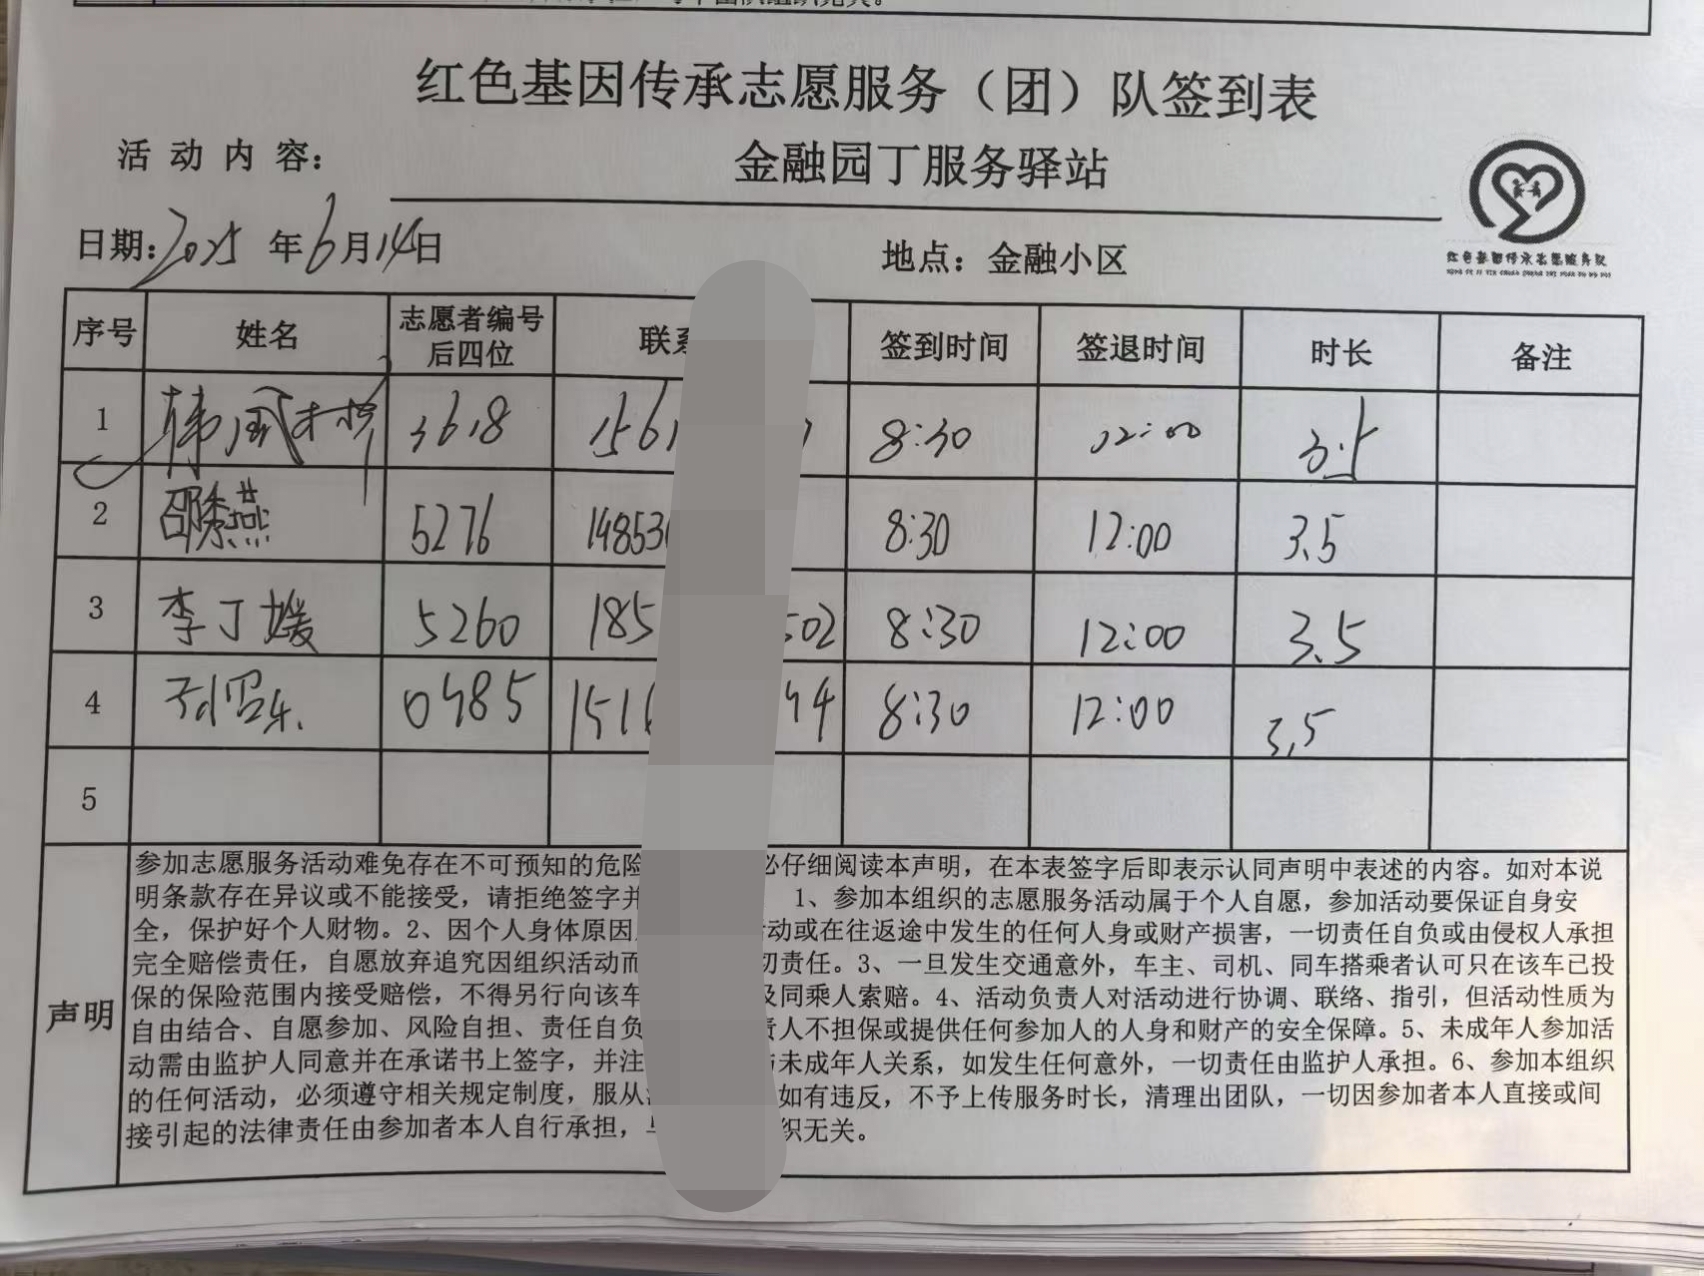 红色基因传承志愿服务（团）队签到表
活动内容： 金融园丁服务驿站
日期：2025年6月14日 地点：金融小区
红色基因传承志愿服务队
序号 姓名 志愿者编号后四位 联系 签到时间 签退时间 时长 备注
1 韩 3618 1561 8:30 12:00 3.5
2 邵秀燕 5276 148530 8:30 12:00 3.5
3 李丁媛 5260 185 502 8:30 12:00 3.5
4 0485 1516 44 8:30 12:00 3.5
5
声明
参加志愿服务活动难免存在不可预知的危险 必仔细阅读本声明，在本表签字后即表示认同声明中表述的内容。如对本说
明条款存在异议或不能接受，请拒绝签字并 1、参加本组织的志愿服务活动属于个人自愿，参加活动要保证自身安
全，保护好个人财物。2、因个人身体原因 动或在往返途中发生的任何人身或财产损害，一切责任自负或由侵权人承担
完全赔偿责任，自愿放弃追究因组织活动而 切责任。3、一旦发生交通意外，车主、司机、同车搭乘者认可只在该车已投
保的保险范围内接受赔偿，不得另行向该车 及同乘人索赔。4、活动负责人对活动进行协调、联络、指引，但活动性质为
自由结合、自愿参加、风险自担、责任自负 责人不担保或提供任何参加人的人身和财产的安全保障。5、未成年人参加活
动需由监护人同意并在承诺书上签字，并注 与未成年人关系，如发生任何意外，一切责任由监护人承担。6、参加本组织
的任何活动，必须遵守相关规定制度，服从 如有违反，不予上传服务时长，清理出团队，一切因参加者本人直接或间
接引起的法律责任由参加者本人自行承担， 织无关。